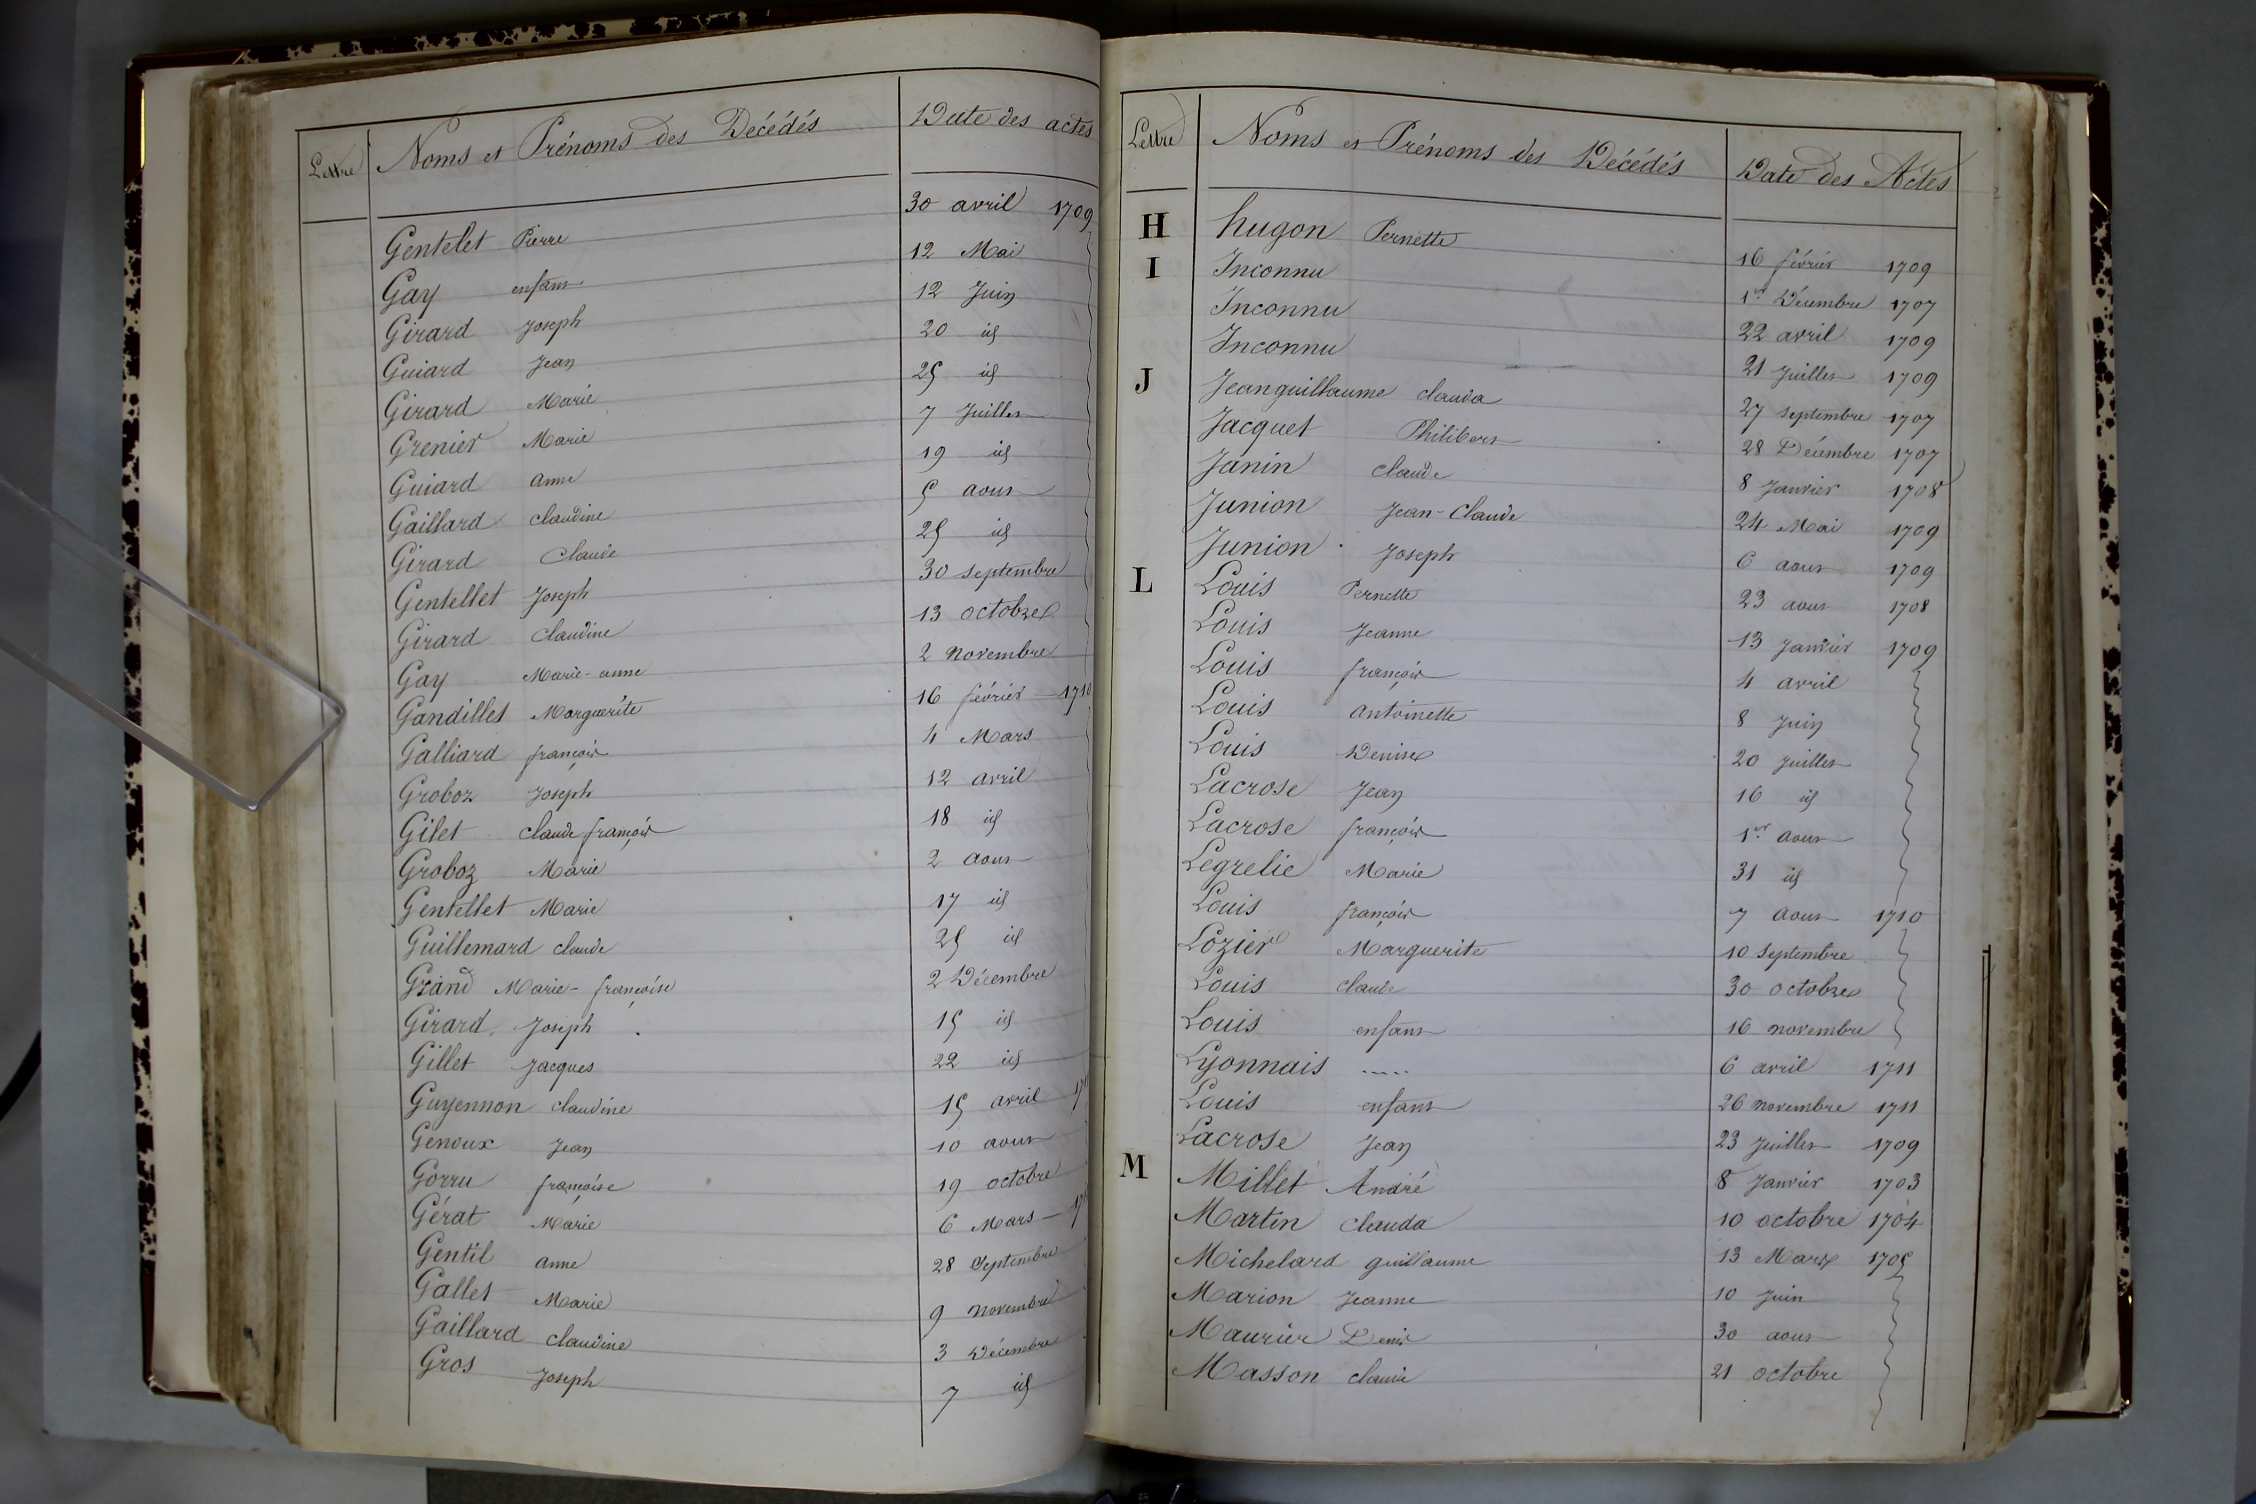 Lettre Noms et Prénoms des Décédés Date des actes
Gentelet Pierre 30 avril 1709
Gay enfant 12 Mai
Girard Joseph 12 Juin
Guiard Jean 20 id
Girard Marie 25 id
Grenier Marie 7 Juillet
Guiard anne 19 id
Gaillard claudine 5 aout
Girard Claude 25 id
Gentellet Joseph 30 septembre
Girard claudine 13 octobre
Gay Marie-anne 2 novembre
Gandillet Marguerite 16 février 1710
Galliard françois 4 Mars
Groboz Joseph 12 avril
Gilet claude françois 18 id
Groboz Marie 2 aout
Gentellet Marie 17 id
Guillemard claude 25 id
Grand Marie-françoise 2 Décembre
Girard Joseph 15 id
Gillet Jacques 22 id
Guyennon claudine 15 avril
Genoux Jean 10 aout
Gorru françoise 19 octobre
Gérat Marie 6 Mars
Gentil anne 28 Septembre
Gallet Marie 9 novembre
Gaillard claudine 3 Décembre
Gros Joseph 7 id
Lettre Noms et Prénoms des Décédés Date des Actes
H hugon Pernette 16 février 1709
I Inconnu 1er Décembre 1707
Inconnu 22 avril 1709
Inconnu 21 Juillet 1709
J Jeanguillaume clauda 27 septembre 1707
Jacquet Philibert 28 Décembre 1707
Janin claude 8 Janvier 1708
Junion Jean-Claude 24 Mai 1709
Junion Joseph 6 aout 1709
L Louis Pernette 23 aout 1708
Louis Jeanne 13 Janvier 1709
Louis françois 4 avril
Louis antoinette 8 Juin
Louis Denise 20 juillet
Lacrose Jean 16 id
Lacrose françois 1er aout
Legrelie Marie 31 id
Louis françois 7 aout 1710
Lozier Marguerite 10 septembre
Louis claude 30 octobre
Louis enfant 16 novembre
Lyonnais ..... 6 avril 1711
Louis enfant 26 novembre 1711
Lacrose Jean 23 juillet 1709
M Millet André 8 Janvier 1703
Martin clauda 10 octobre 1704
Michelard guillaume 13 Mars 1705
Marion Jeanne 10 Juin
Maurier Denis 30 aout
Masson claude 21 octobre